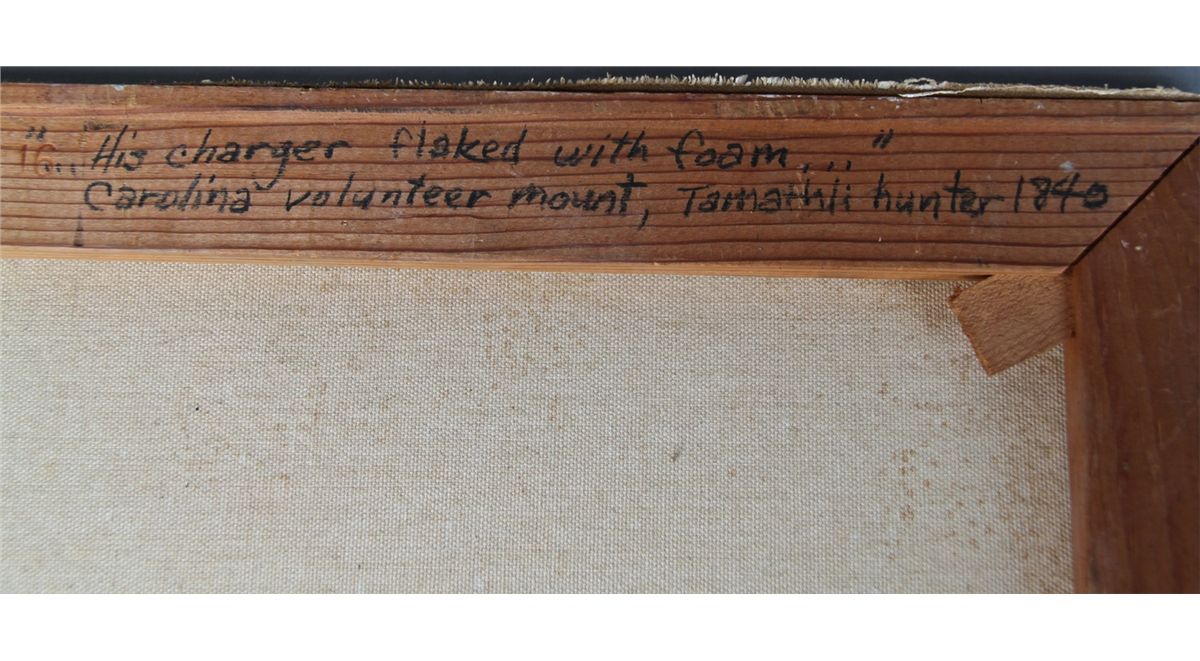 16 "...His charger flaked with foam..."
Carolina volunteer mount, Tamathli hunter 1840